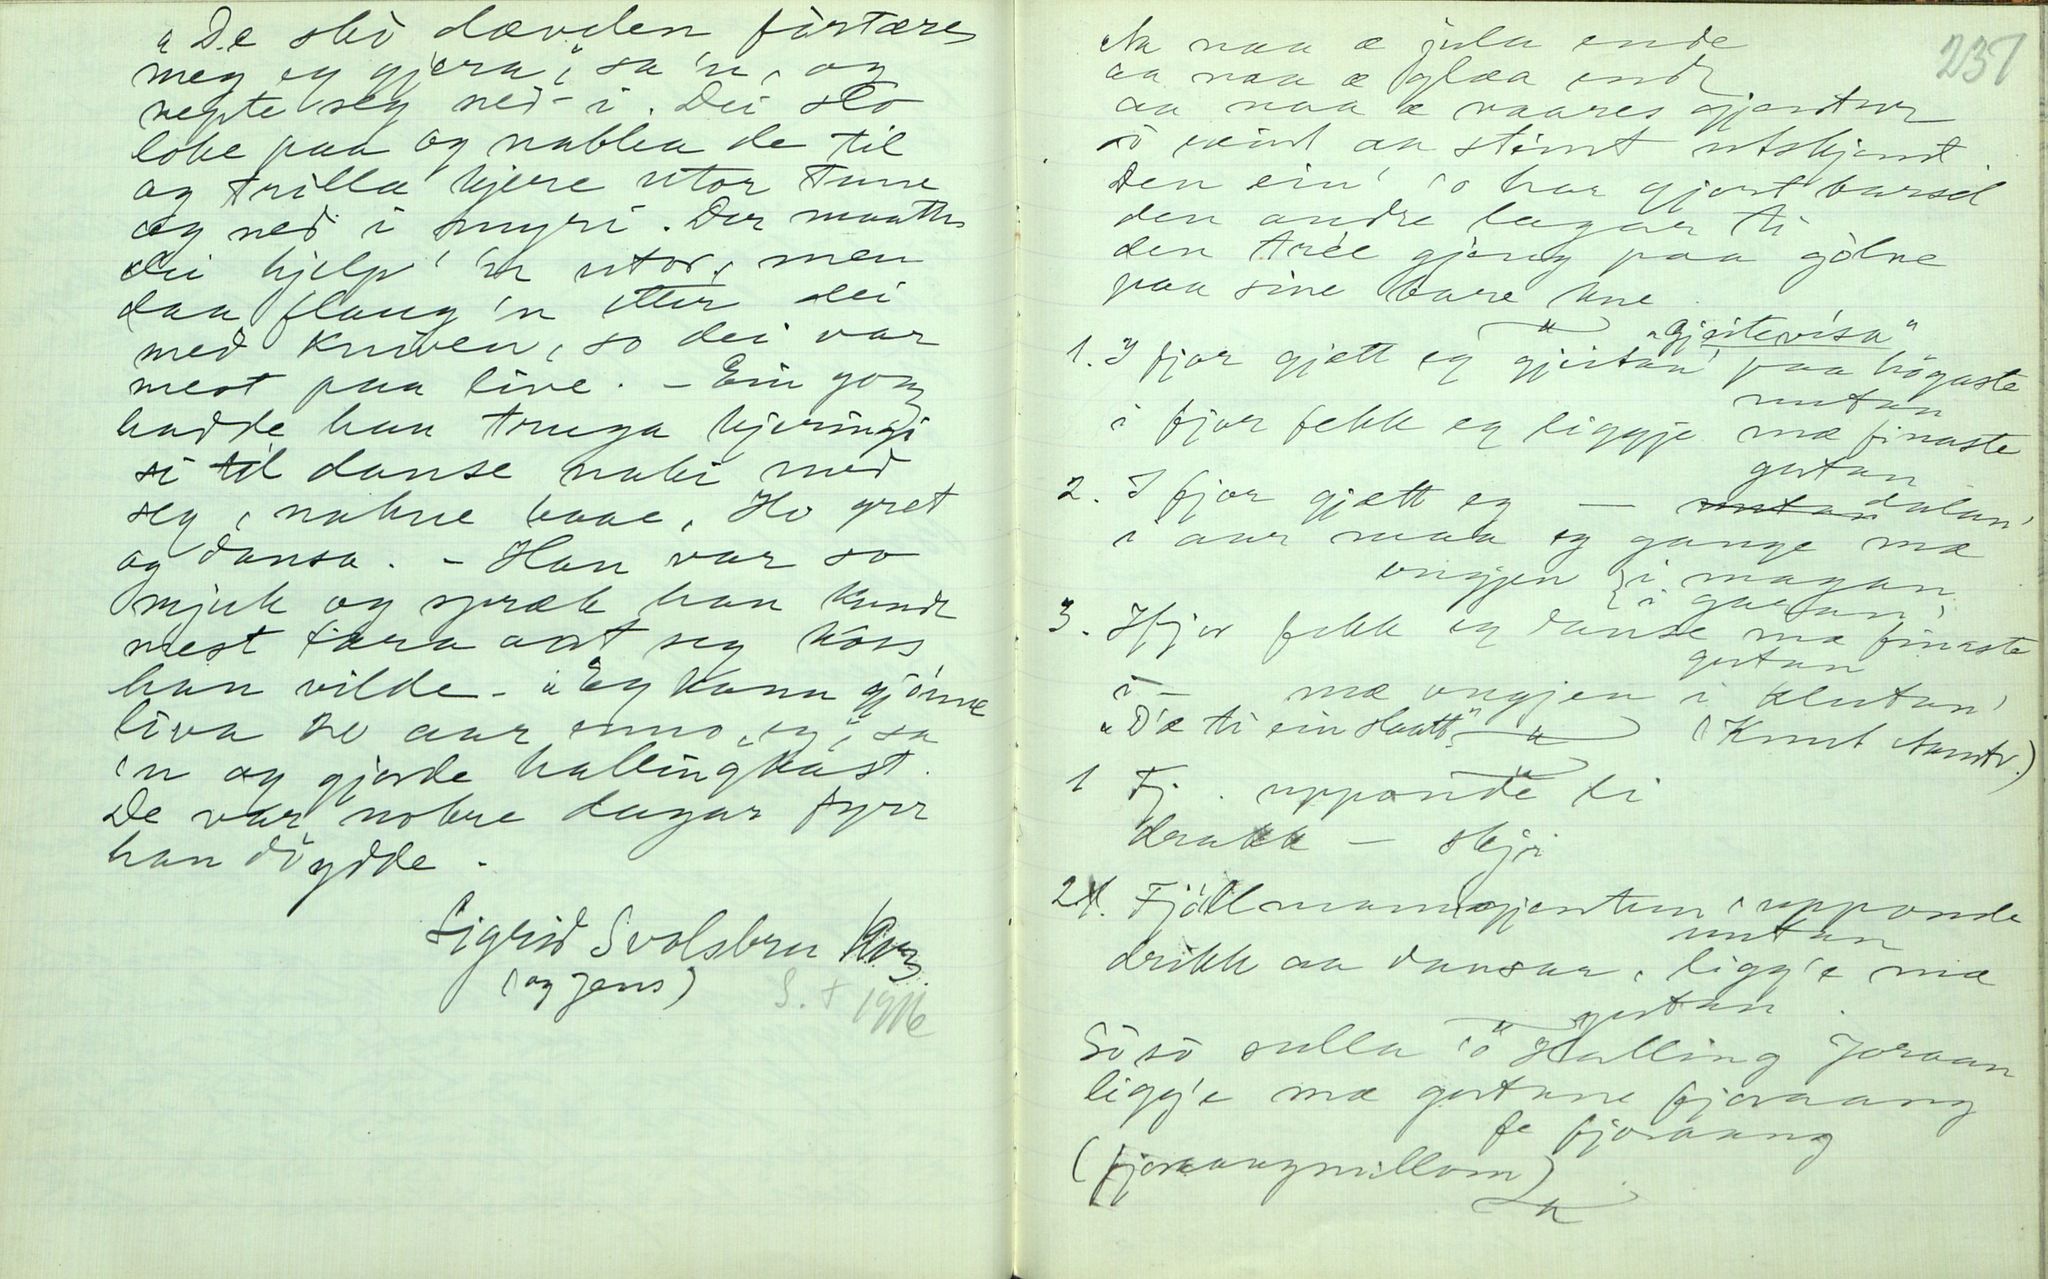 "De ska dævden fårtære
meg eg gjera", sa 'n, og
nepte seg ned-i. Dei slo
loke paa og nabba de til
og trilla kjere utor tune
og ned i myri. Der maatte
dei hjelp' 'n utor, men
daa flaug 'n etter dei
med kniven, so dei var
mest paa live. - Ein gong
hadde han truga kjeringi
si til danse naki med
seg, nakne baae. Ho gret
og dansa. - Han var so
mjuk og spræk han kunde
mest fara aat seg koss
han vilde - "Eg kann gjønne
liva 20 aar enno, eg", sa
'n og gjorde hallingkast.
De var nokre dagar fyrr
han døydde.
Sigrid Svolsbru
(og Jens)
S. + 1916
237
Aa naa æ jula ende
aa naa æ glæa endt
aa naa æ vaares gjentur
so eint aa stint utskjemt
Den ein' so har gjort barsel
den andre lagar ti
den tree gjeng paa gølve
paa sine bare kne
"gjeitevisa"
1. I fjor gjætt eg gjeitan' paa høgaste
nutan
i fjor fekk eg liggje mæ finaste
gutan
2. I fjor gjætt eg — nutan dalan'
i aar maa eg gange mæ
ongjen i magan
i gaaran'
3. Ifjor fekk eg danse mæ finaste
gutan
i — mæ ongjen i klutan'
"D'æ ti ein slaatt" (Knut
1 Fj. upponde li
drakk — skjir
2. Fjøllmannsgjentun upponde
nutan
drikk aa dansar, ligg'e mæ
gutan.
So so sulla so Halling Joraan
ligg'e mæ gutane fjoraang
fe fjoraang
(fjoraangmillom)